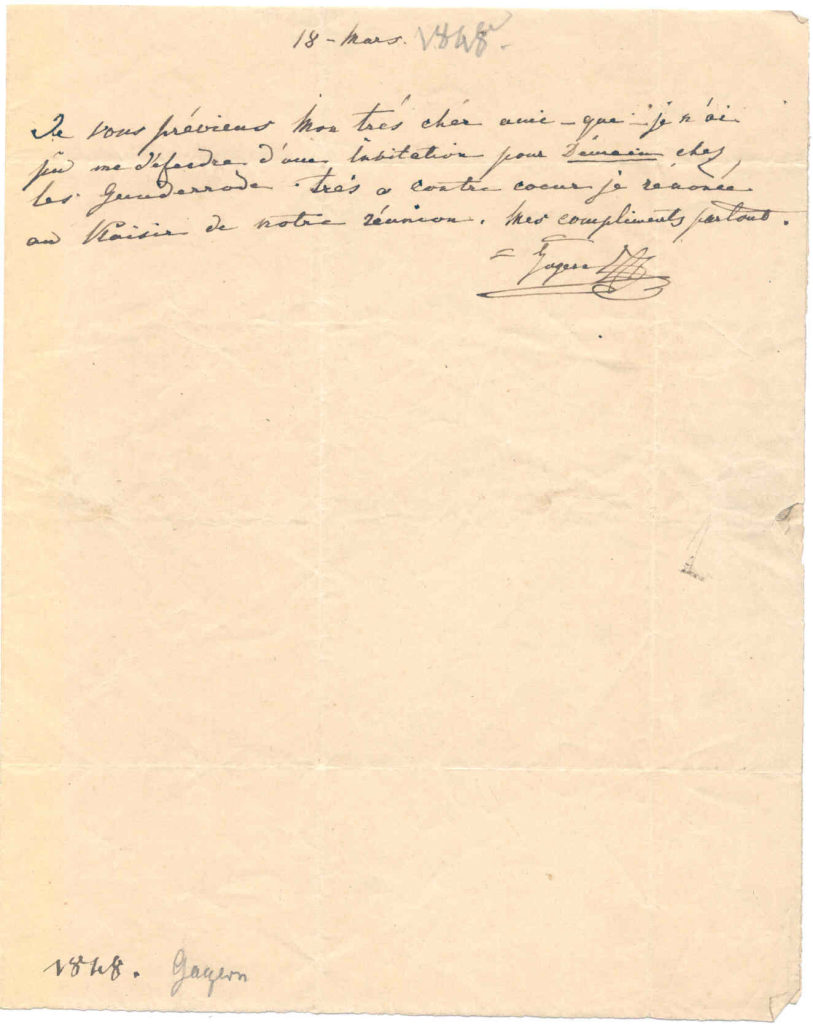 18 - Mars. 1848.
Je vous préviens Mon trés chér ami - que je n'ai
pû me défendre d'une Invitation pour Demain chez
les Gunderrode. trés a contre coeur je rénonce
au Plaisir de notre réunion. Mes compliments partout.
Gagern
1848. Gagern